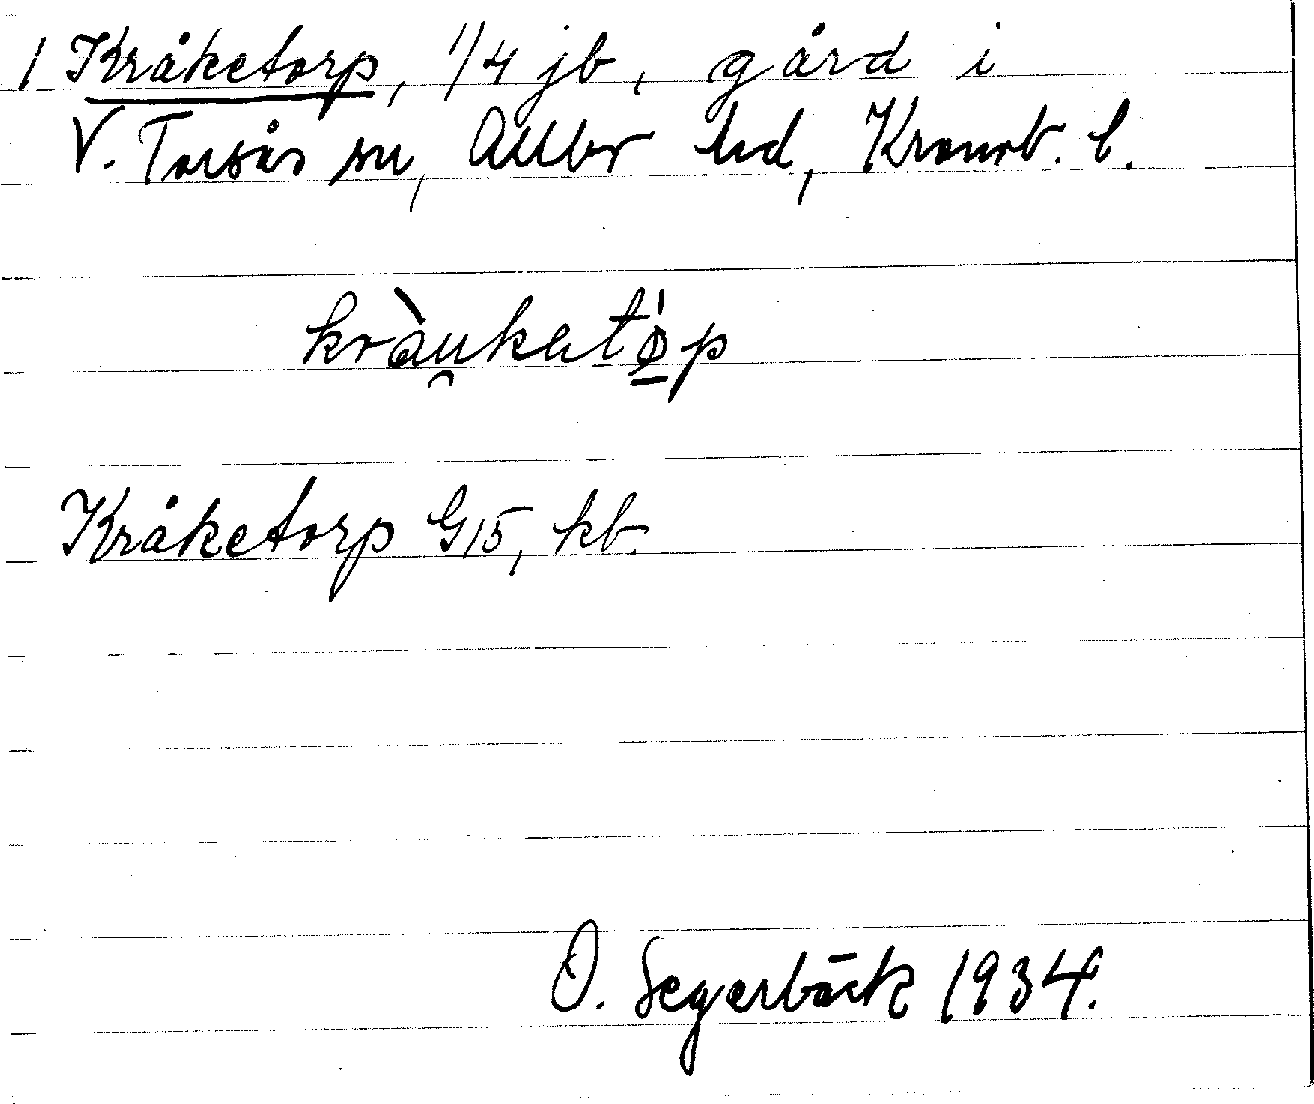 1 Kråketorp, 1/4 jb, gård i
V. Torsås sn, Allbo hd, Kronob. l.
kràu̯kató̱p
Kråketorp G15, kb.
O. Segerbäck 1934.